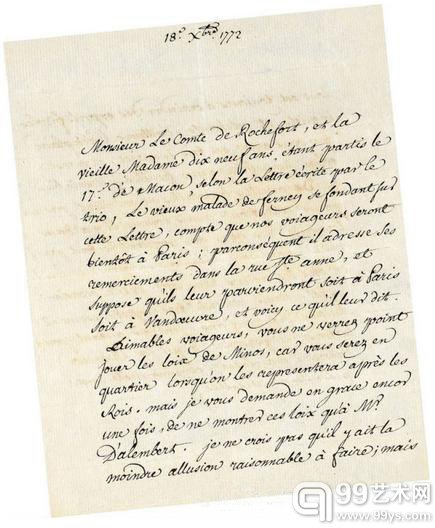 18.e Xbre 1772
Monsieur Le Comte de Rochefort, et la
vieille Madame dix neuf ans, étant partis le
17.e de Macon, selon la Lettre écrite par le
trio, Le vieux malade de ferney se fondant sur
cette Lettre, compte que nos voiageurs seront
bientôt à Paris; parconséquent il adresse ses
remerciements dans la rue Ste. anne, et
suppose qu'ils leur parviendront soit à Paris
soit à Vandœuvre, et voicy ce qu'il leur dit.
Aimables voiageurs, vous ne verrez point
jouer les loix de Minos, car vous serez en
quartier lorsqu'on les representera après les
Rois. mais je vous demande en grace encor
une fois, de ne montrer ces loix qu'à Mr.
D'alembert. je ne crois pas qu'il y ait la
moindre allusion raisonnable à faire; mais
99艺术网
www.99ys.com